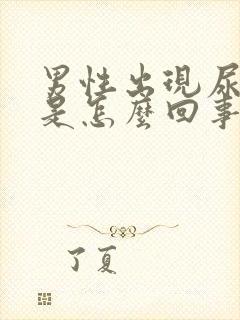 男性出現尿
是怎麼回事
了夏